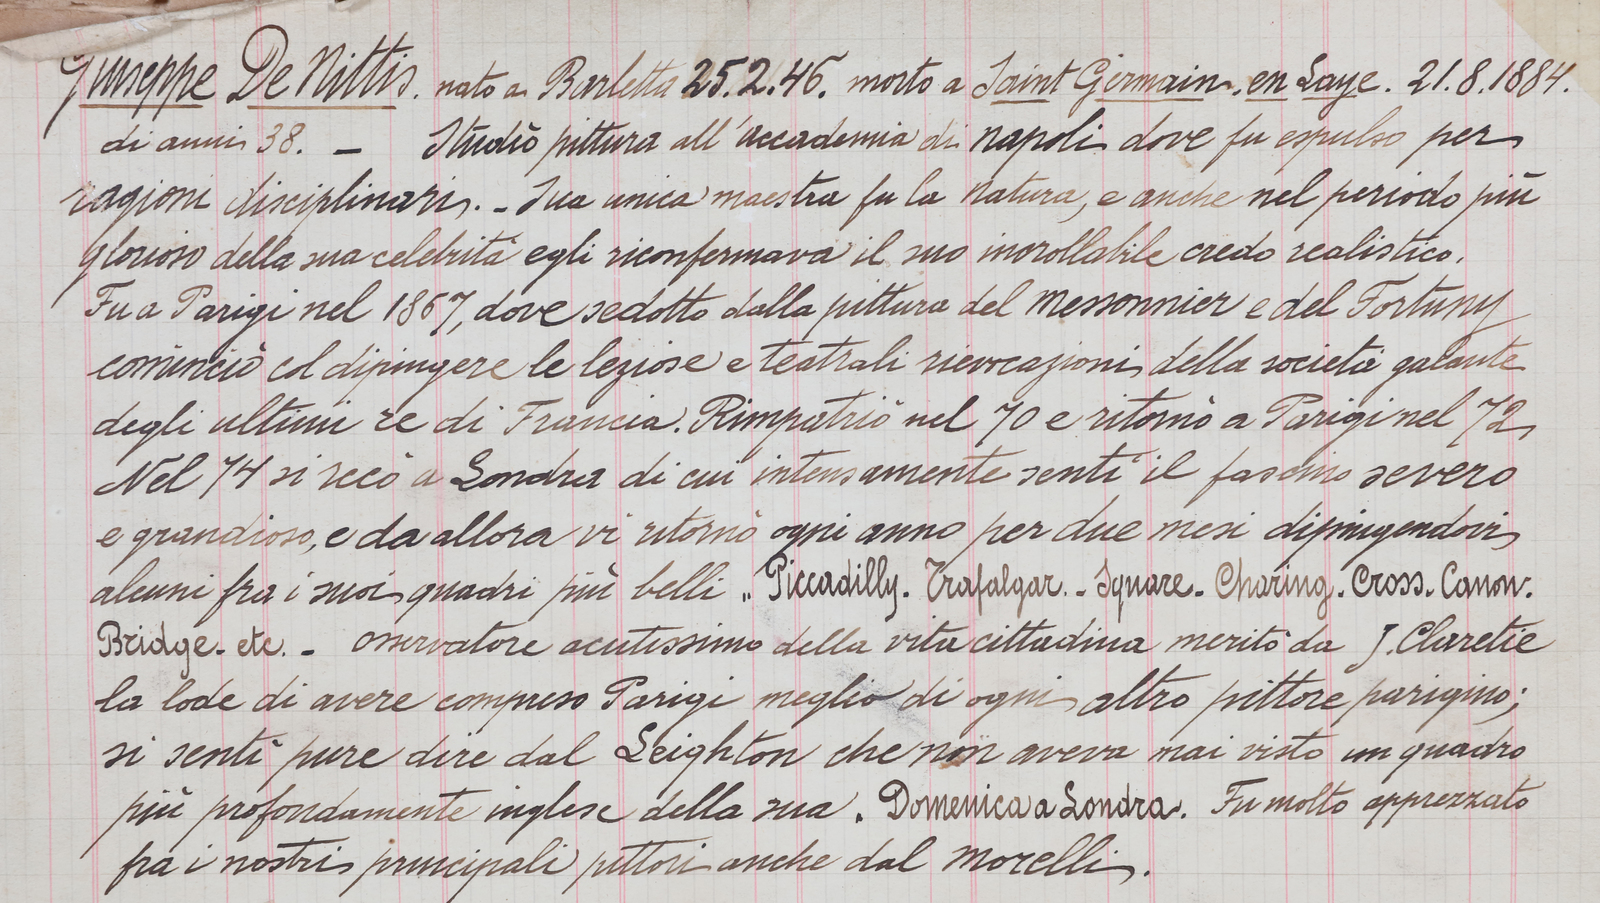 Giuseppe De Nittis. nato a Barletta 25.2.46. morto a Saint Germain. en Laye. 21.8.1884.
di anni 38. – Studiò pittura all'accademia di napoli dove fu espulso per
ragioni disciplinari. – Sua unica maestra fu la natura, e anche nel periodo più
glorioso della sua celebrità egli riconfermava il suo incrollabile credo realistico.
Fu a Parigi nel 1867, dove sedotto dalla pittura del Messonnier e del Fortuny
cominciò col dipingere le leziose e teatrali rievocazioni della società galante
degli ultimi re di Francia. Rimpatriò nel 70 e ritornò a Parigi nel 72
Nel 74 si recò a Londra di cui intensamente sentì il fascino severo
e grandioso, e da allora vi ritornò ogni anno per due mesi dipingendovi
alcuni fra i suoi quadri più belli „ Piccadilly. Trafalgar. - Square - Charing. Cross. Canon.
Bridge - etc. – osservatore acutissimo della vita cittadina meritò da J. Claretie
la lode di avere compreso Parigi meglio di ogni altro pittore parigino;
si sentì pure dire dal Leighton che non aveva mai visto un quadro
più profondamente inglese della sua „ Domenica a Londra. Fu molto apprezzato
fra i nostri principali pittori anche dal Morelli.